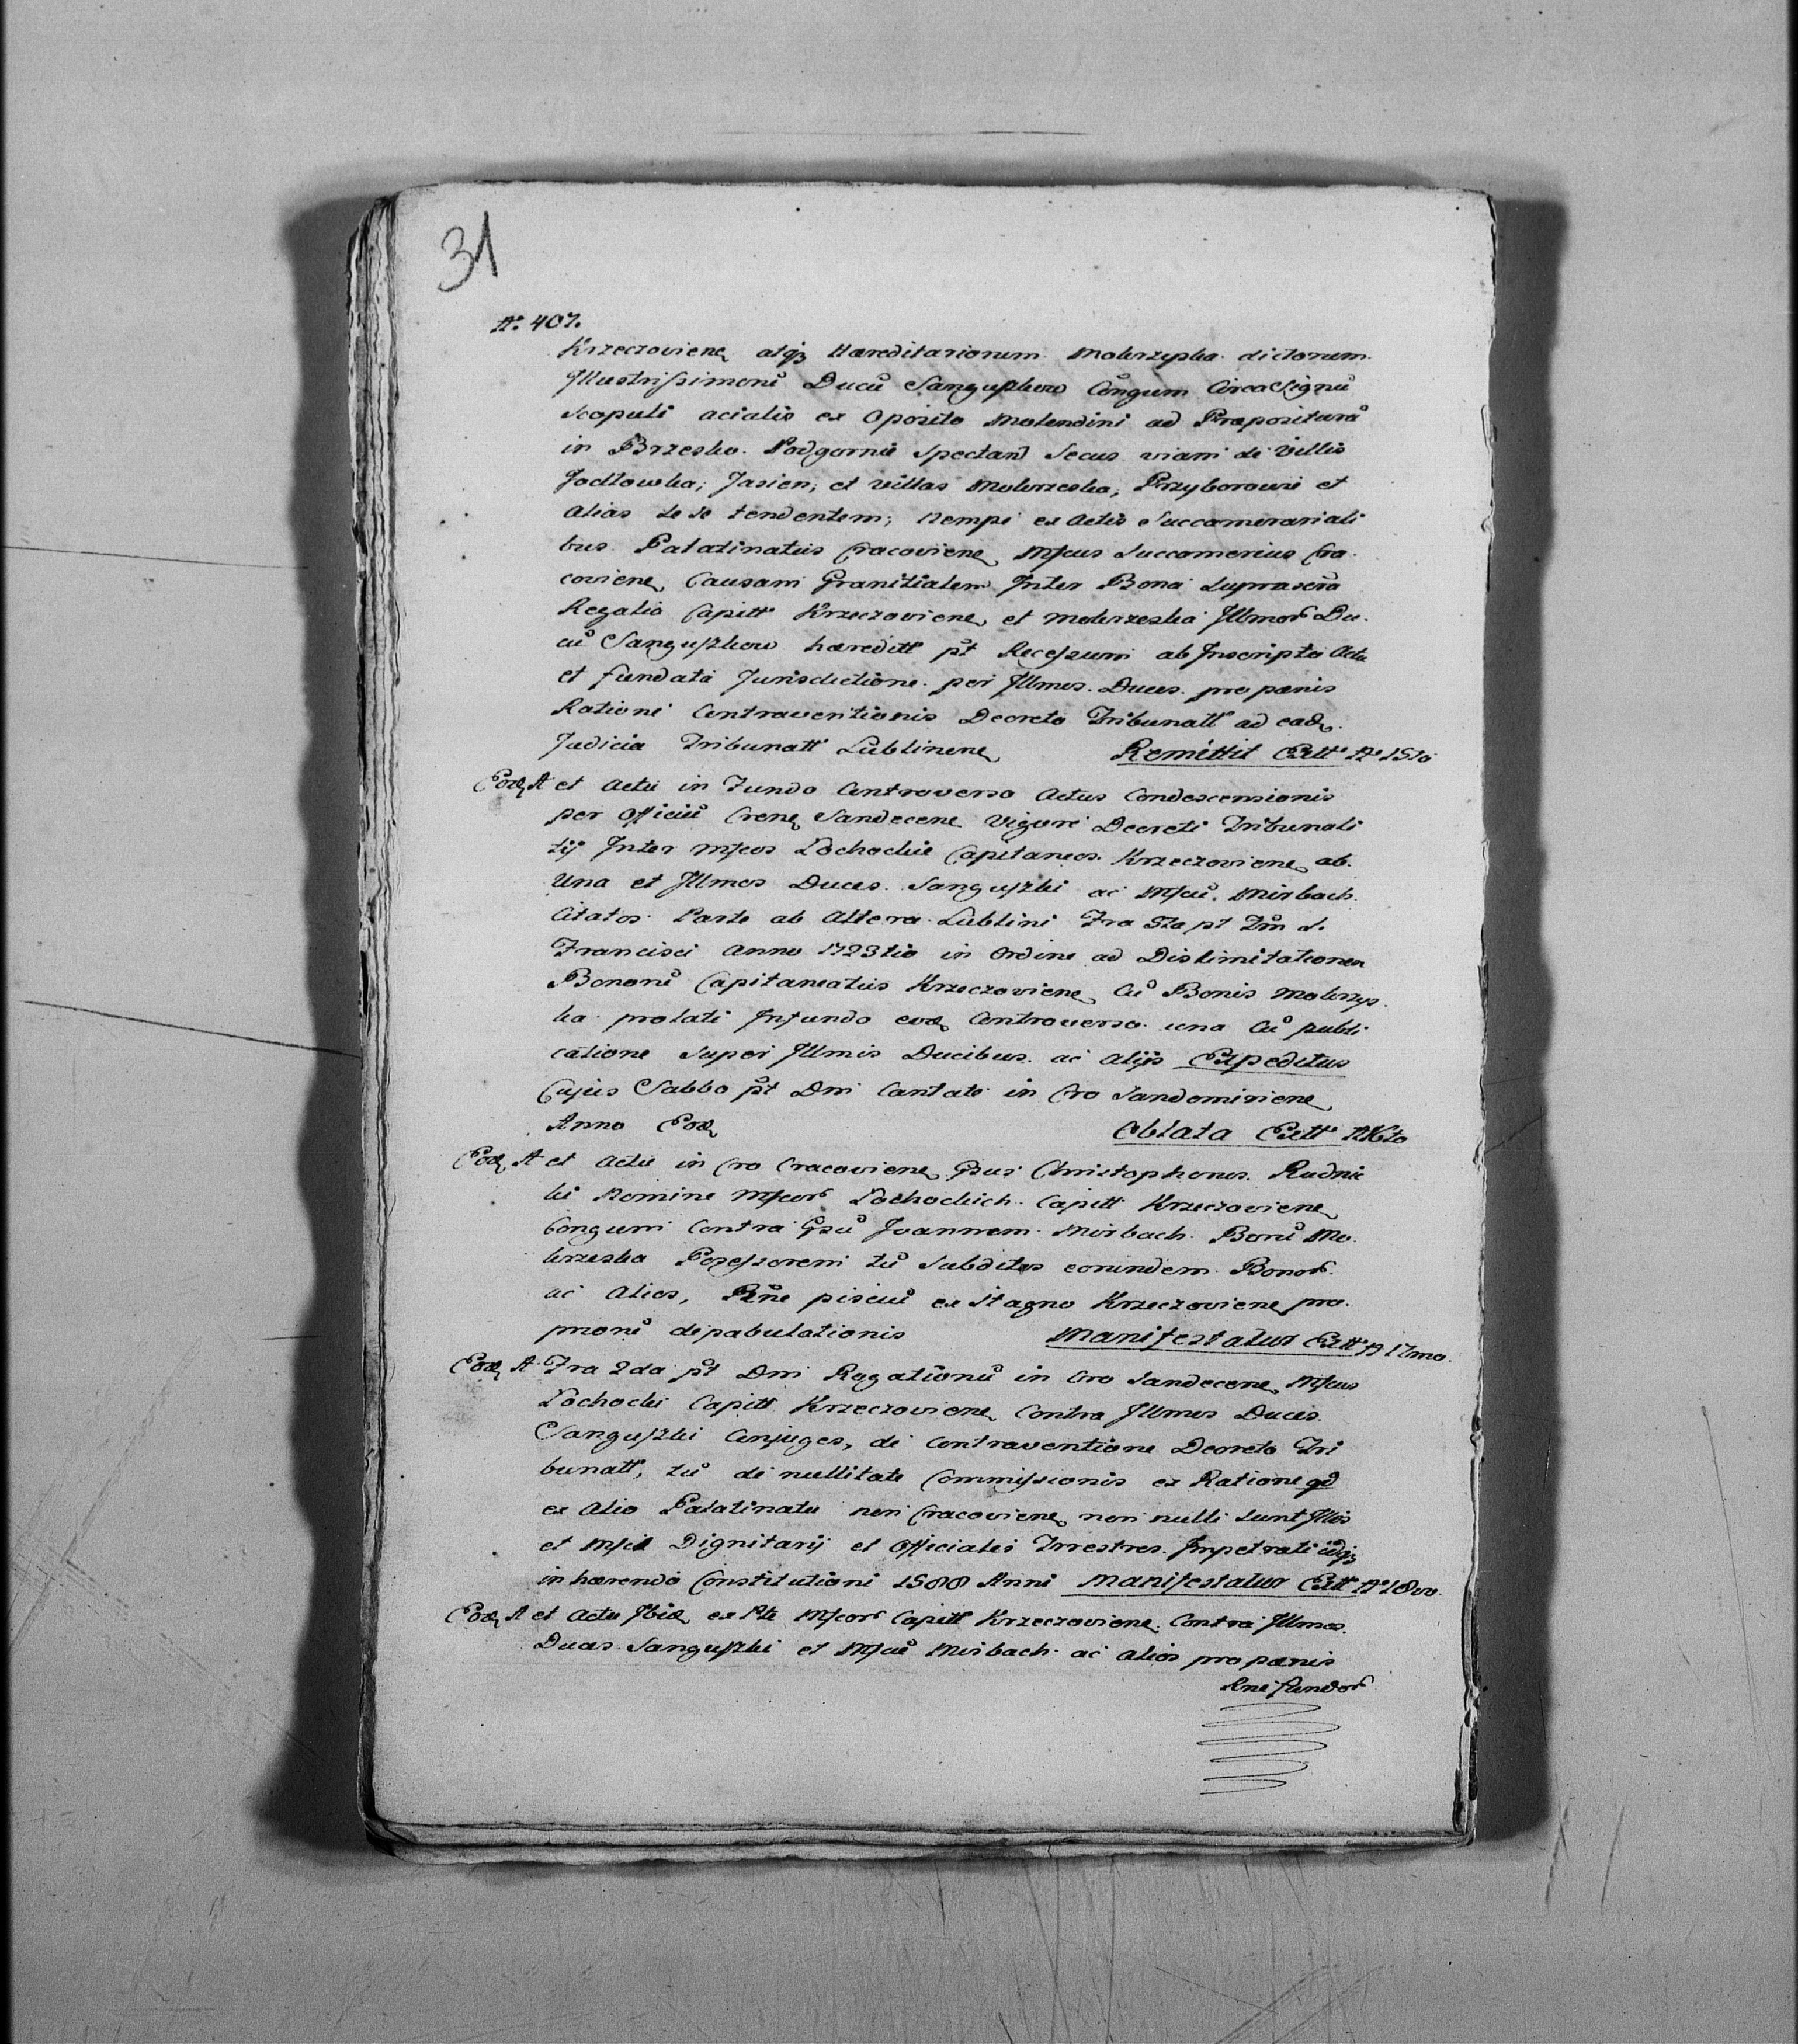 31
No. 407.
Krzeczoviene atqз Haereditariorum Mokrzyska dictorum
Illustrissimorũ Ducũ Sanguszkow Congum Circa Signũ
Scopuli acialis ex Oposito Molendini ad Praeposituram
in Brzesko Podgornie Spectan Secus viam de Villis
Jodłowka, Jasien, et villas Mokrzeska, Przyborowie et
alias se se tendentem; nempe ex Actis Succamerariali
bus Palatinatus Cracoviene Mfcus Succamerius Cra
coviene Causam Granitialem Inter Bona Suprascra
Regalia Capitt Krzeczoviene et Mokrzeska Illmor Du
cũ Sanguszkow haereditt pt Recessum ab Inscripto Actu
et fundata Jurisdictione per Illmos Duces pro paenis
Ratione Contraventionis Decreto Tribunatt ad eade
Judicia Tribunatt Lublinene Remittit Extt No 15to
Eod A et Actu in Fundo Controverso Actus Condescensionis
per Officiũ Crene Sandecene vigore Decreti Tribunali
tij Inter Mfcos Łochockie Capitaneos Krzeczoviene ab
Una et Illmos Duces Sanguszki ac Mfcũ Mirbach
Citatos Parte ab Altera Lublini Fra 5ta pt Fm S.
Francisci Anno 1723tio in Ordine ad Dislimitationem
Bonorũ Capitaneatus Krzeczoviene Cũ Bonis Mokrzys
ka prolati Infundo eod Controverso una Cũ publi
catione Super Illmis Ducibus ac alijs Expeditus
Cujus Sabbo pt Dm Cantate in Cro Sandomiriene
Anno Eod Oblata Extt N16to
Eod A et Actu in Cro Cracoviene Gsus Christophorus Rudnic
ki Nomine Mfcor Łochockich Capitt Krzeczoviene
Congum Contra Gsũ Joannem Mirbach Bonũ Mo
krzeska Possessorem tũ Subditos eorundem Bonor
ac Alios, Rne pisciũ ex Stagno Krzeczoviene pro
priorũ depabulationis Manifestatur Extt N 17mo
Eod A Fra 2da pt Dm Rogationũ in Cro Sandecene Mfcus
Łochocki Capitt Krzeczoviene Contra Illmos Duces
Sanguszki Conjuges, de Contraventione Decreto Tri
bunatt, tũ de nullitate Commissionis ex Ratione qd
ex Alio Palatinatu non Cracoviene non nulli sunt Illres
et Mfci Dignitarij et Officiales Trrestres Impetrati idqз
inhaerendo Constitutioni 1588 Anni Manifestatur Extt No 18vo
Eod A et Actu Ibid ex Pte Mfcor Capitt Krzeczoviene Contra Illmos
Duces Sanguszki et Mfcũ Mirbach ac alios pro paenis
Rne fundor